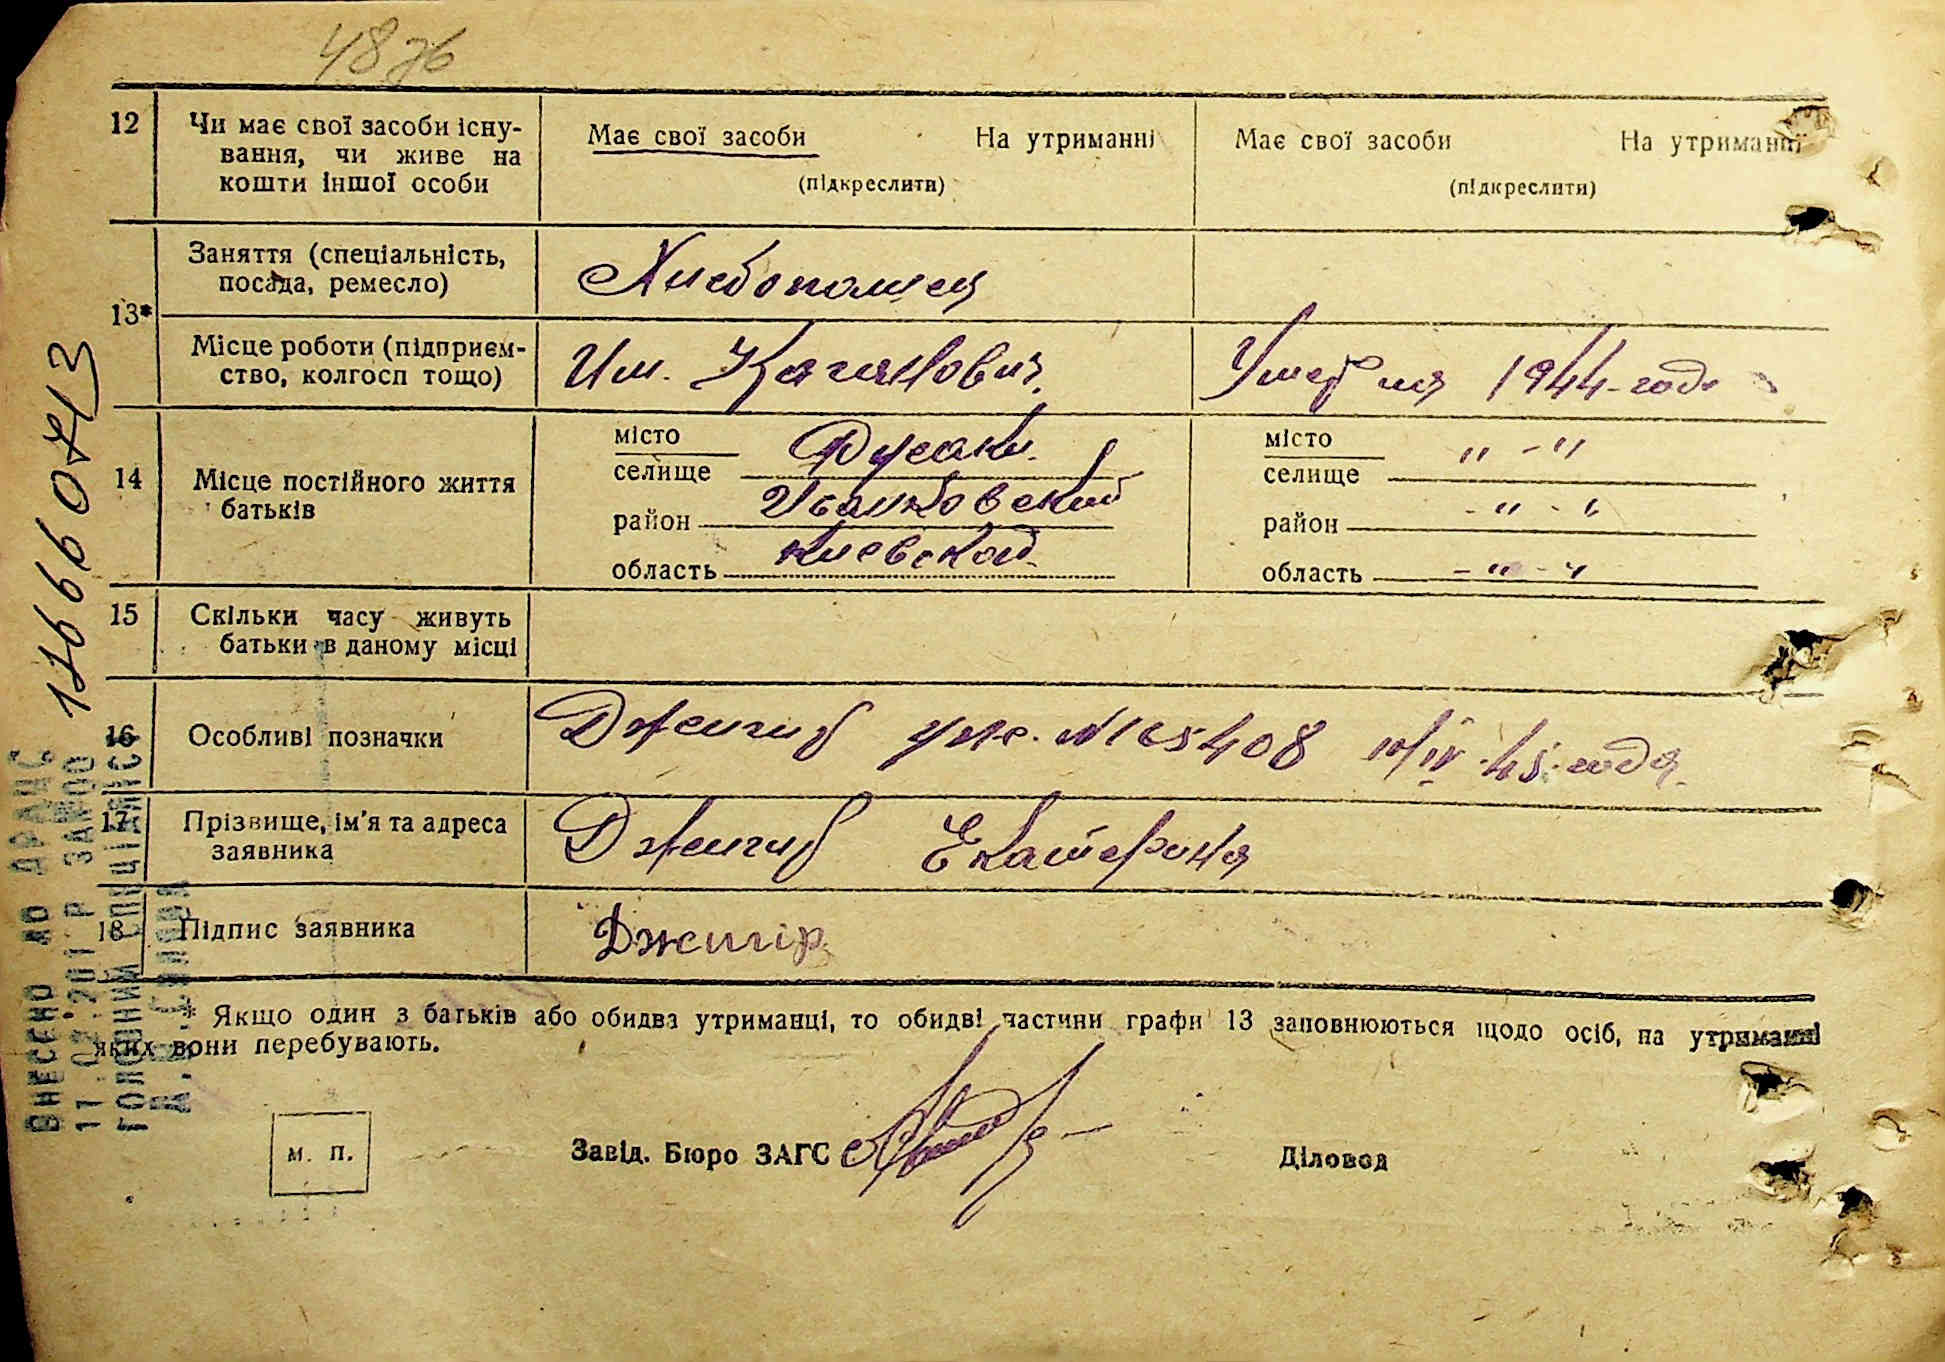 48 зв
12 Чи має свої засоби існу-
вання, чи живе на
кошти іншої особи
Має свої засоби На утриманні
(підкреслити)
Має свої засоби На утриманні
(підкреслити)
13*
Заняття (спеціальність,
посада, ремесло)
Хлебопашец
Місце роботи (підприєм-
ство, колгосп тощо)
Им. Кагановича
Умерла 1944 года
14 Місце постійного життя
батьків
місто
селище Русаки
район Иванковский
область Киевской
місто
селище " - "
район - " - "
область - " - "
15 Скільки часу живуть
батьки в даному місці
16 Особливі позначки
Джигир №165408 10/IV-45 года
17 Прізвище, ім'я та адреса
заявника
Джигир Екатерина
18 Підпис заявника
Джигір
* Якщо один з батьків або обидва утриманці, то обидві частини графи 13 заповнюються щодо осіб, на утриманні
яких вони перебувають.
м. п.
Завід. Бюро ЗАГС
Діловод
ВНЕСЕНО ДО ДРАЦС
ГОЛОВНИЙ СПЕЦІАЛІСТ